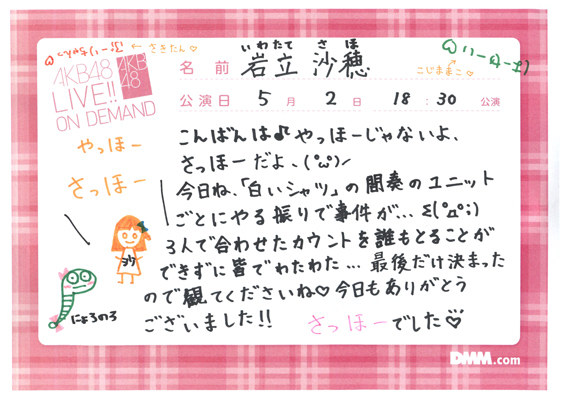 ← さきたん♡
AKB48
LIVE!!
ON DEMAND
AKB
48
いわたて さほ
名前 岩立 沙穂
こじままこ♡
公演日 5月 2日 18:30 公演
やっほー
さっほー
こんばんは♪やっほーじゃないよ、
さっほーだよ、(°ω°)ノ
今日ね、「白いシャツ」の間奏のユニット
ごとにやる振りで事件が…Σ(°Д°;)
3人で合わせたカウントを誰もとることが
できずに皆でわたわた…最後だけ決まった
ので観てくださいね♡今日もありがとう
ございました!!
さっほーでした♡
にょろのろ
DMM.com